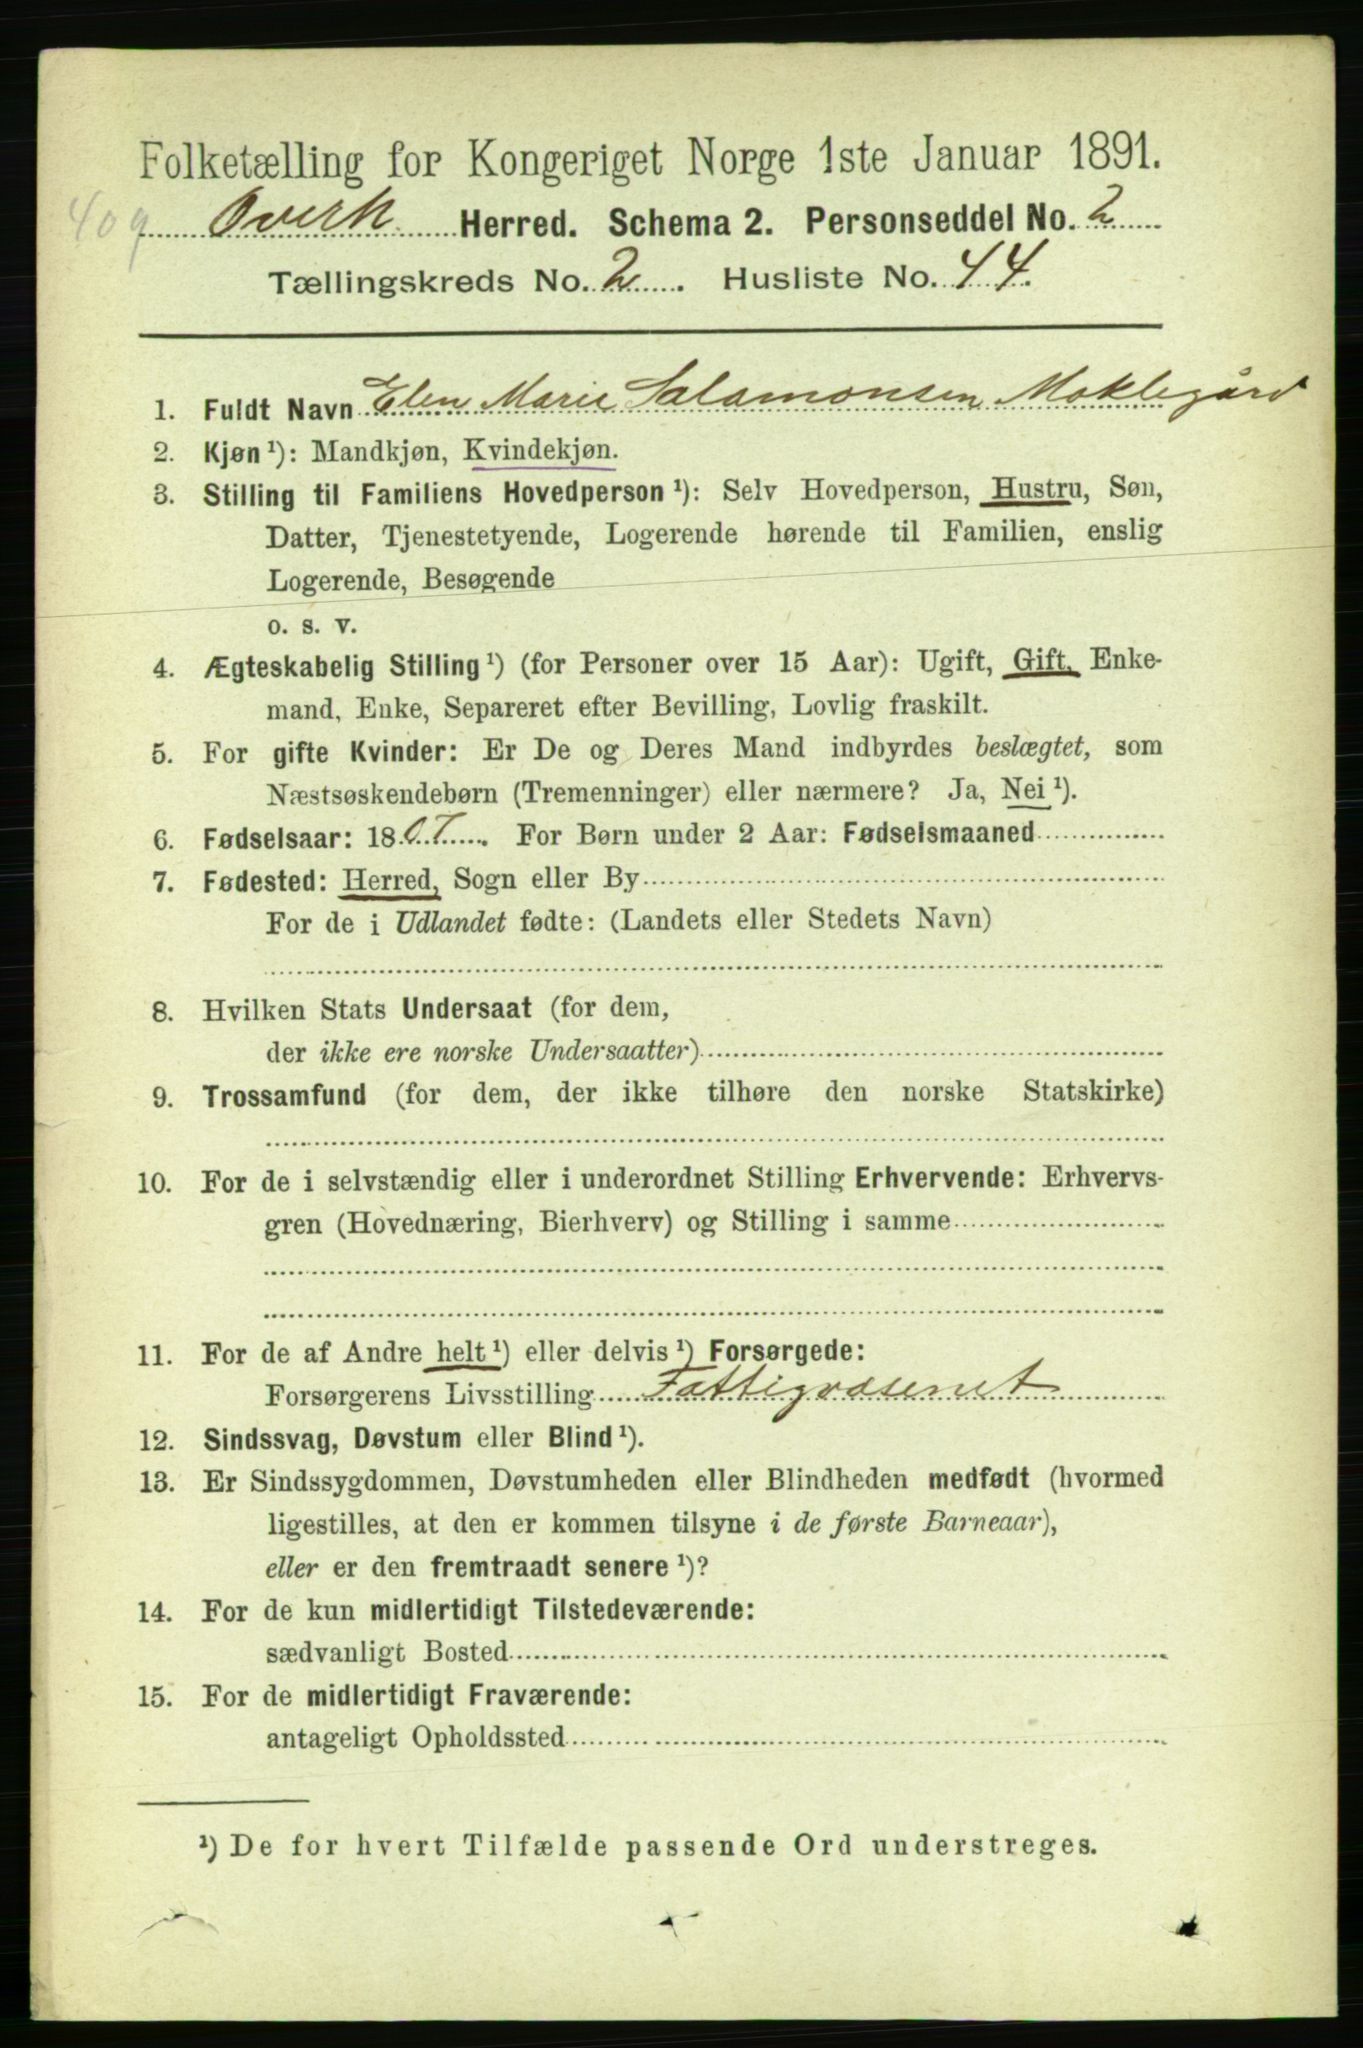 Folketælling for Kongeriget Norge 1ste Januar 1891.
409 Overh. Herred. Schema 2. Personseddel No. 2
Tællingskreds No. 2. Husliste No. 44.
1. Fuldt Navn Elen Marie Salamonsen Moklegård
2. Kjøn¹): Mandkjøn, Kvindekjøn.
3. Stilling til Familiens Hovedperson¹): Selv Hovedperson, Hustru, Søn,
Datter, Tjenestetyende, Logerende hørende til Familien, enslig
Logerende, Besøgende
o. s. v.
4. Ægteskabelig Stilling¹) (for Personer over 15 Aar): Ugift, Gift, Enke-
mand, Enke, Separeret efter Bevilling, Lovlig fraskilt.
5. For gifte Kvinder: Er De og Deres Mand indbyrdes beslægtet, som
Næstsøskendebørn (Tremenninger) eller nærmere? Ja, Nei¹).
6. Fødselsaar: 1807. For Børn under 2 Aar: Fødselsmaaned
7. Fødested: Herred, Sogn eller By
For de i Udlandet fødte: (Landets eller Stedets Navn)
8. Hvilken Stats Undersaat (for dem,
der ikke ere norske Undersaatter)
9. Trossamfund (for dem, der ikke tilhøre den norske Statskirke)
10. For de i selvstændig eller i underordnet Stilling Erhvervende: Erhvervs-
gren (Hovednæring, Bierhverv) og Stilling i samme
11. For de af Andre helt¹) eller delvis¹) Forsørgede:
Forsørgerens Livsstilling Fattigvæsenet
12. Sindssvag, Døvstum eller Blind¹).
13. Er Sindssygdommen, Døvstumheden eller Blindheden medfødt (hvormed
ligestilles, at den er kommen tilsyne i de første Barneaar),
eller er den fremtraadt senere¹)?
14. For de kun midlertidigt Tilstedeværende:
sædvanligt Bosted
15. For de midlertidigt Fraværende:
antageligt Opholdssted
¹) De for hvert Tilfælde passende Ord understreges.